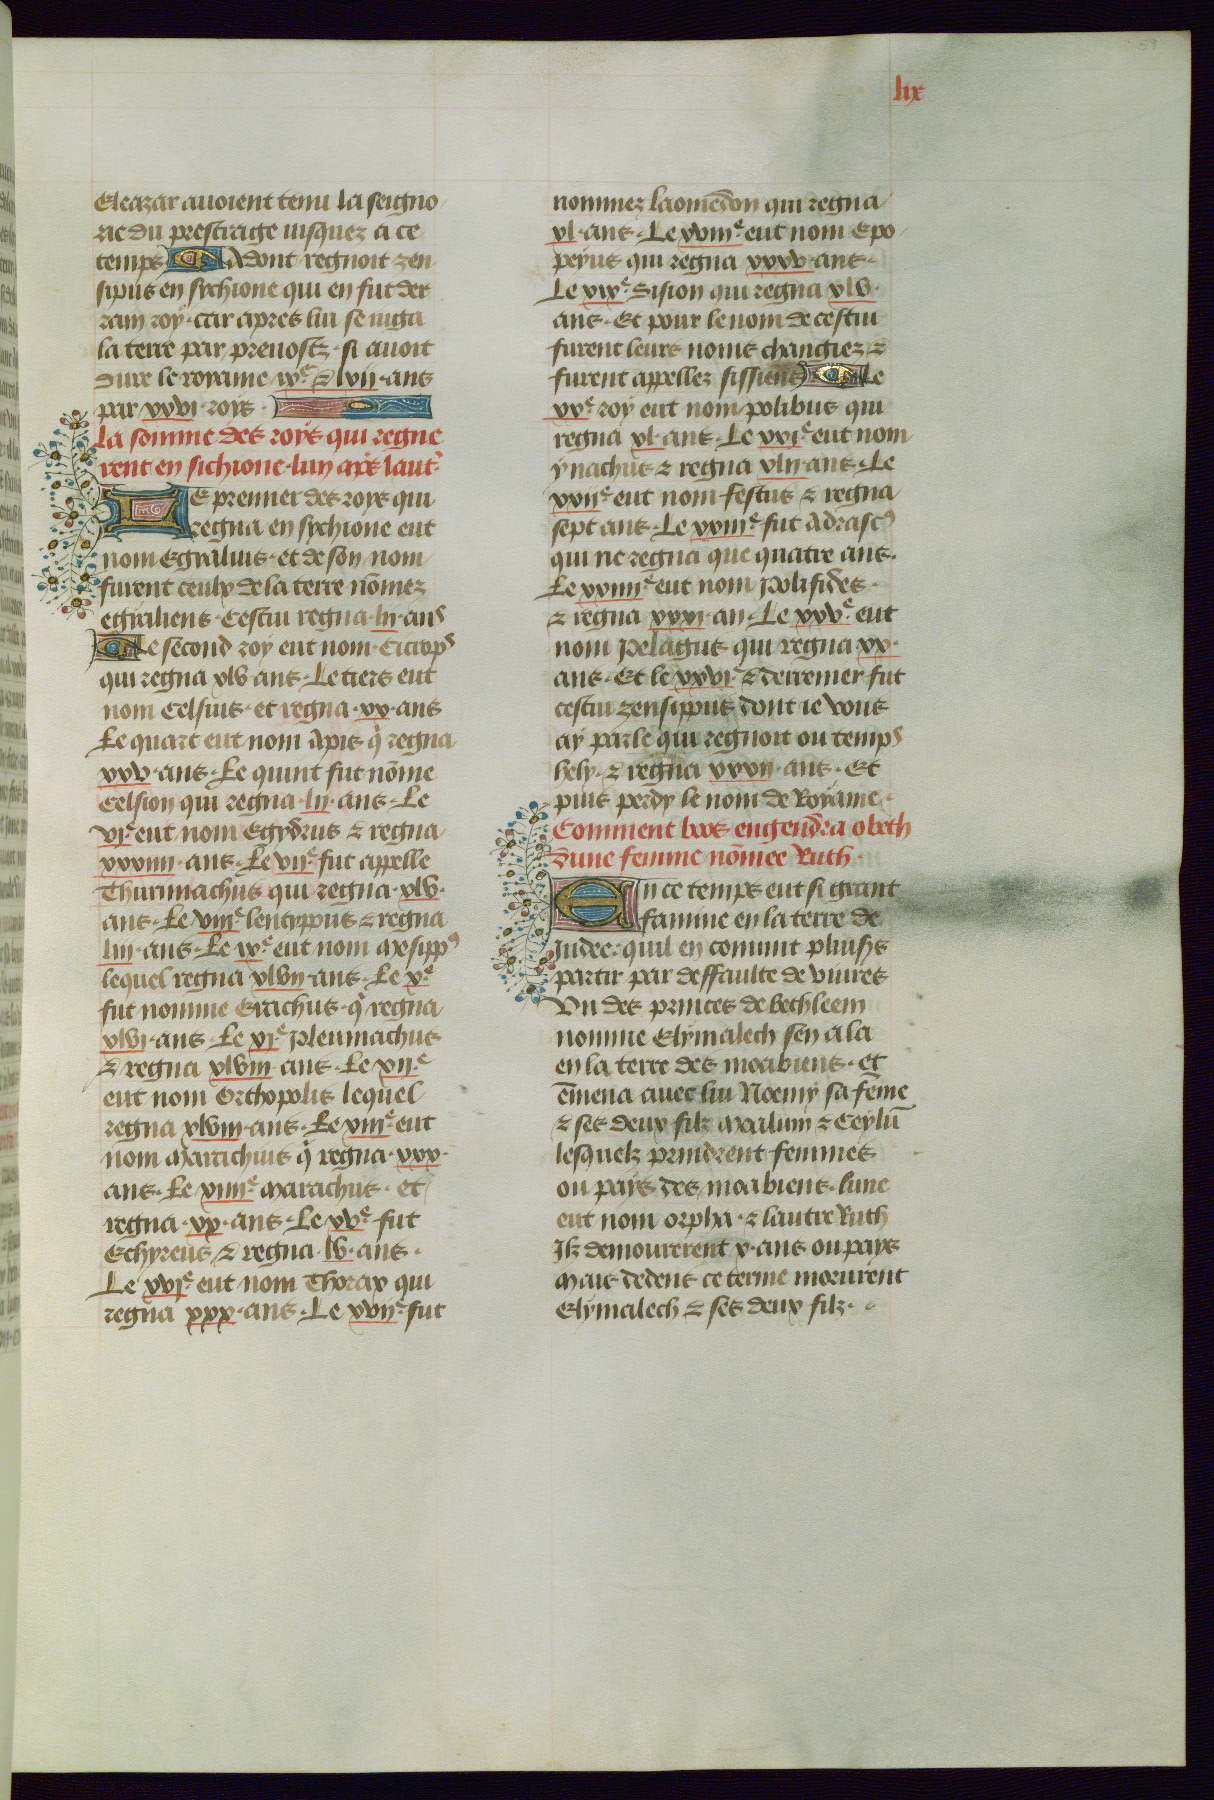 lix
Eleazar auoient tenu la seigno
rie du prestrage iusquez a ce
temps Adont regnoit zen
sipus en sychione qui en fut der
rain roy · car apres lui se iuga
la terre par preuostz · si auoit
dure le royaume ixᶜ & lvii · ans
par xxvi · roys
La somme des roys qui regne
rent en sichione · lun apꝭ laut̾
Le premier des roys qui
regna en sychione eut
nom Egyalius · et de son nom
furent ceulx de la terre nōmez
egyaliens · Cestui regna · lii · ans
Le second roy eut nom · Cicrops
qui regna xlv · ans · Le tiers eut
nom Celsius · et regna · xx · ans
Le quart eut nom Apis q̄ regna
xxv · ans · Le quint fut nōme
Celsion qui regna · lii · ans · Le
vi.ᵉ eut nom Egydrus & regna
xxxiiii · ans · Le vii.ᵉ fut appelle
Thurimachus qui regna · xlv ·
ans · Le viii.ᵉ lencyppus & regna
liii · ans · Le ix.ᵉ eut nom Mesipp⁹
lequel regna xlvii · ans · Le x.ᵉ
fut nomme Erachus · q̄ regna
xlvi · ans · Le xi.ᵉ Pleumachus
& regna xlviii · ans · Le xii.ᵉ
eut nom Orthopolis lequel
regna xlviii · ans · Le xiii.ᵉ eut
nom Marachius q̄ regna · xxx ·
ans · Le xiiii.ᵉ Marachus · et
regna · xx · ans · Le xv.ᵉ fut
Echyreus & regna · lv · ans ·
Le xvi.ᵉ eut nom Thorax qui
regna xxx · ans · Le xvii.ᵉ fut
nommez laomedon qui regna
xl · ans · Le xviii.ᵉ eut nom Epo
peyus qui regna xxxv · ans ·
Le xix.ᵉ Sision qui regna xlv ·
ans · Et pour le nom de cestui
furent leurs noms changiez &
furent appellez sissiens Le
xx.ᵉ roy eut nom polibus qui
regna xl · ans · Le xxi.ᵉ eut nom
ynachus & regna xlii · ans · Le
xxii.ᵉ eut nom festus & regna
sept ans · Le xxiii.ᵉ fut Adrast⁹
qui ne regna que quatre ans ·
Le xxiiii.ᵉ eut nom Polifides ·
& regna xxxi · an · Le xxv.ᵉ eut
nom Pelagus qui regna · xx ·
ans · Et le xxvi.ᵉ & derremier fut
cestui zensippus dont ie vous
ay parle qui regnoit ou temps
hely · & regna xxxii · ans · Et
puis perdy le nom de Royame ·
Comment boos engendra obeth
dune femme nōmee Ruth ·
En ce temps eut si grant
famine en la terre de
Judee · quil en conuint pluiss
partir par deffaulte de viures
Un des princes de bethleem
nomme Elymalech sen ala
en la terre des moabiens · et
ēmena auec lui Noemy sa fēme
& ses deux filz Maalum & Ceylū
lesquelz prindrent femmes
ou pays des moabiens · lune
eut nom orpha · & lautre Ruth
Ilz demourerent x · ans ou pays
Mais dedens ce terme morurent
Elymalech & ses deux filz ·